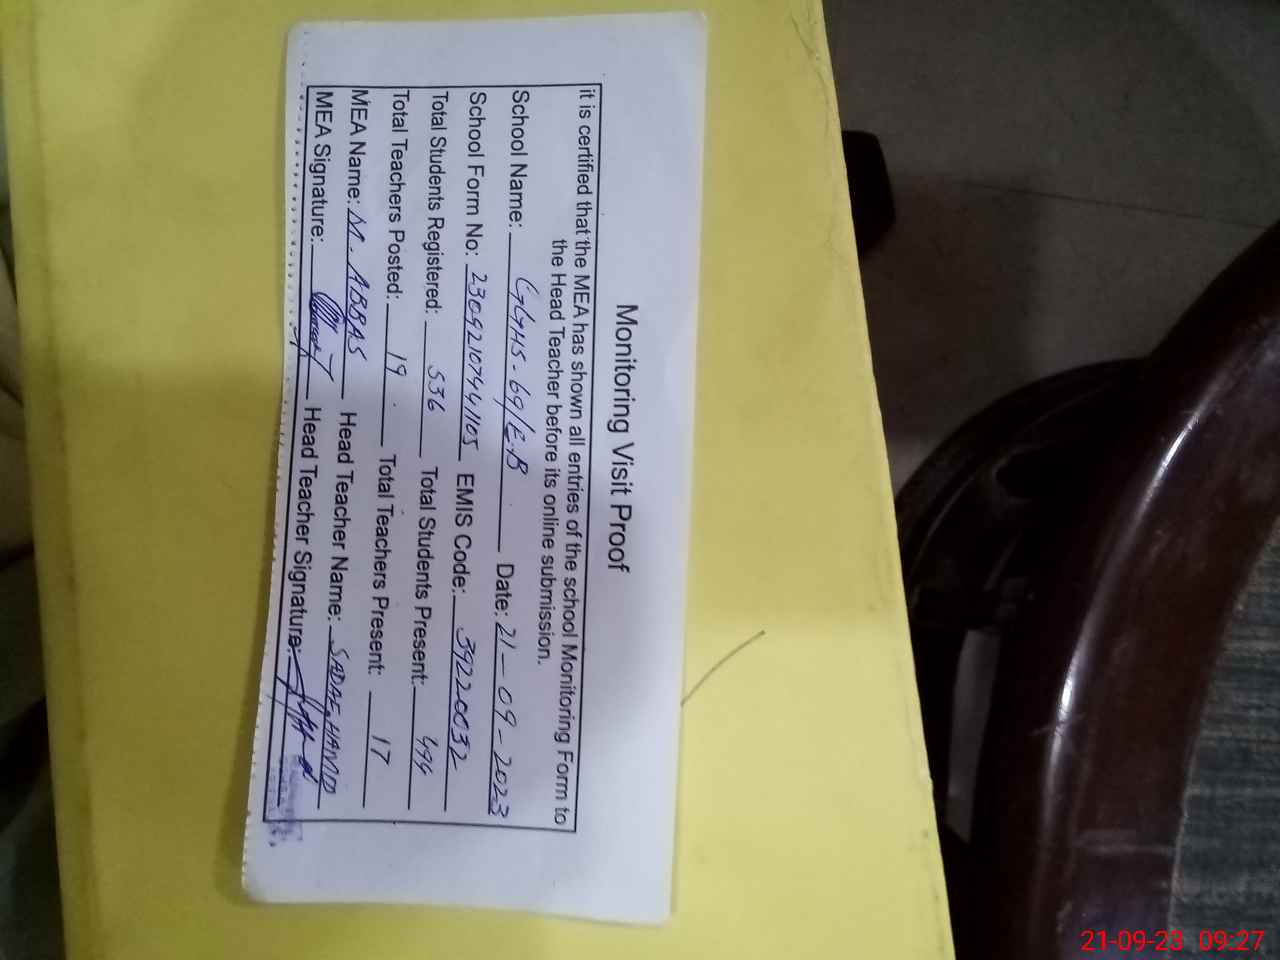 Monitoring Visit Proof
it is certified that the MEA has shown all entries of the school Monitoring Form to
the Head Teacher before its online submission.
School Name: GGHS-69/E.B Date: 21-09-2023
School Form No: EMIS Code: 39220032
Total Students Registered: 536 Total Students Present: 494
Total Teachers Posted: 19 Total Teachers Present: 17
MEA Name: M. ABBAS Head Teacher Name: SADAF HAMID
MEA Signature: Head Teacher Signature:
21-09-23 09:27